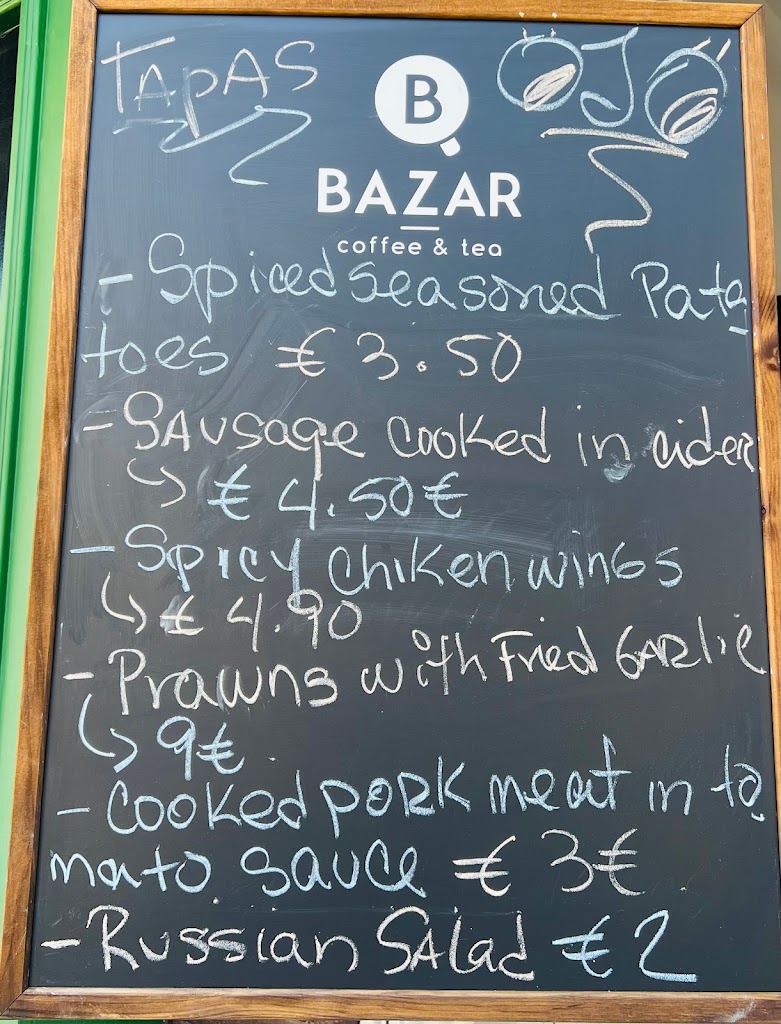 TAPAS
OJO
B
BAZAR
coffee & tea
- Spiced seasoned Pata
toes € 3.50
- Sausage cooked in cider
€ 4.50€
- Spicy chiken wings
€ 4.90
- Prawns with Fried Garlic
9€
- cooked pork meat in to
mato sauce € 3€
- Russian Salad € 2